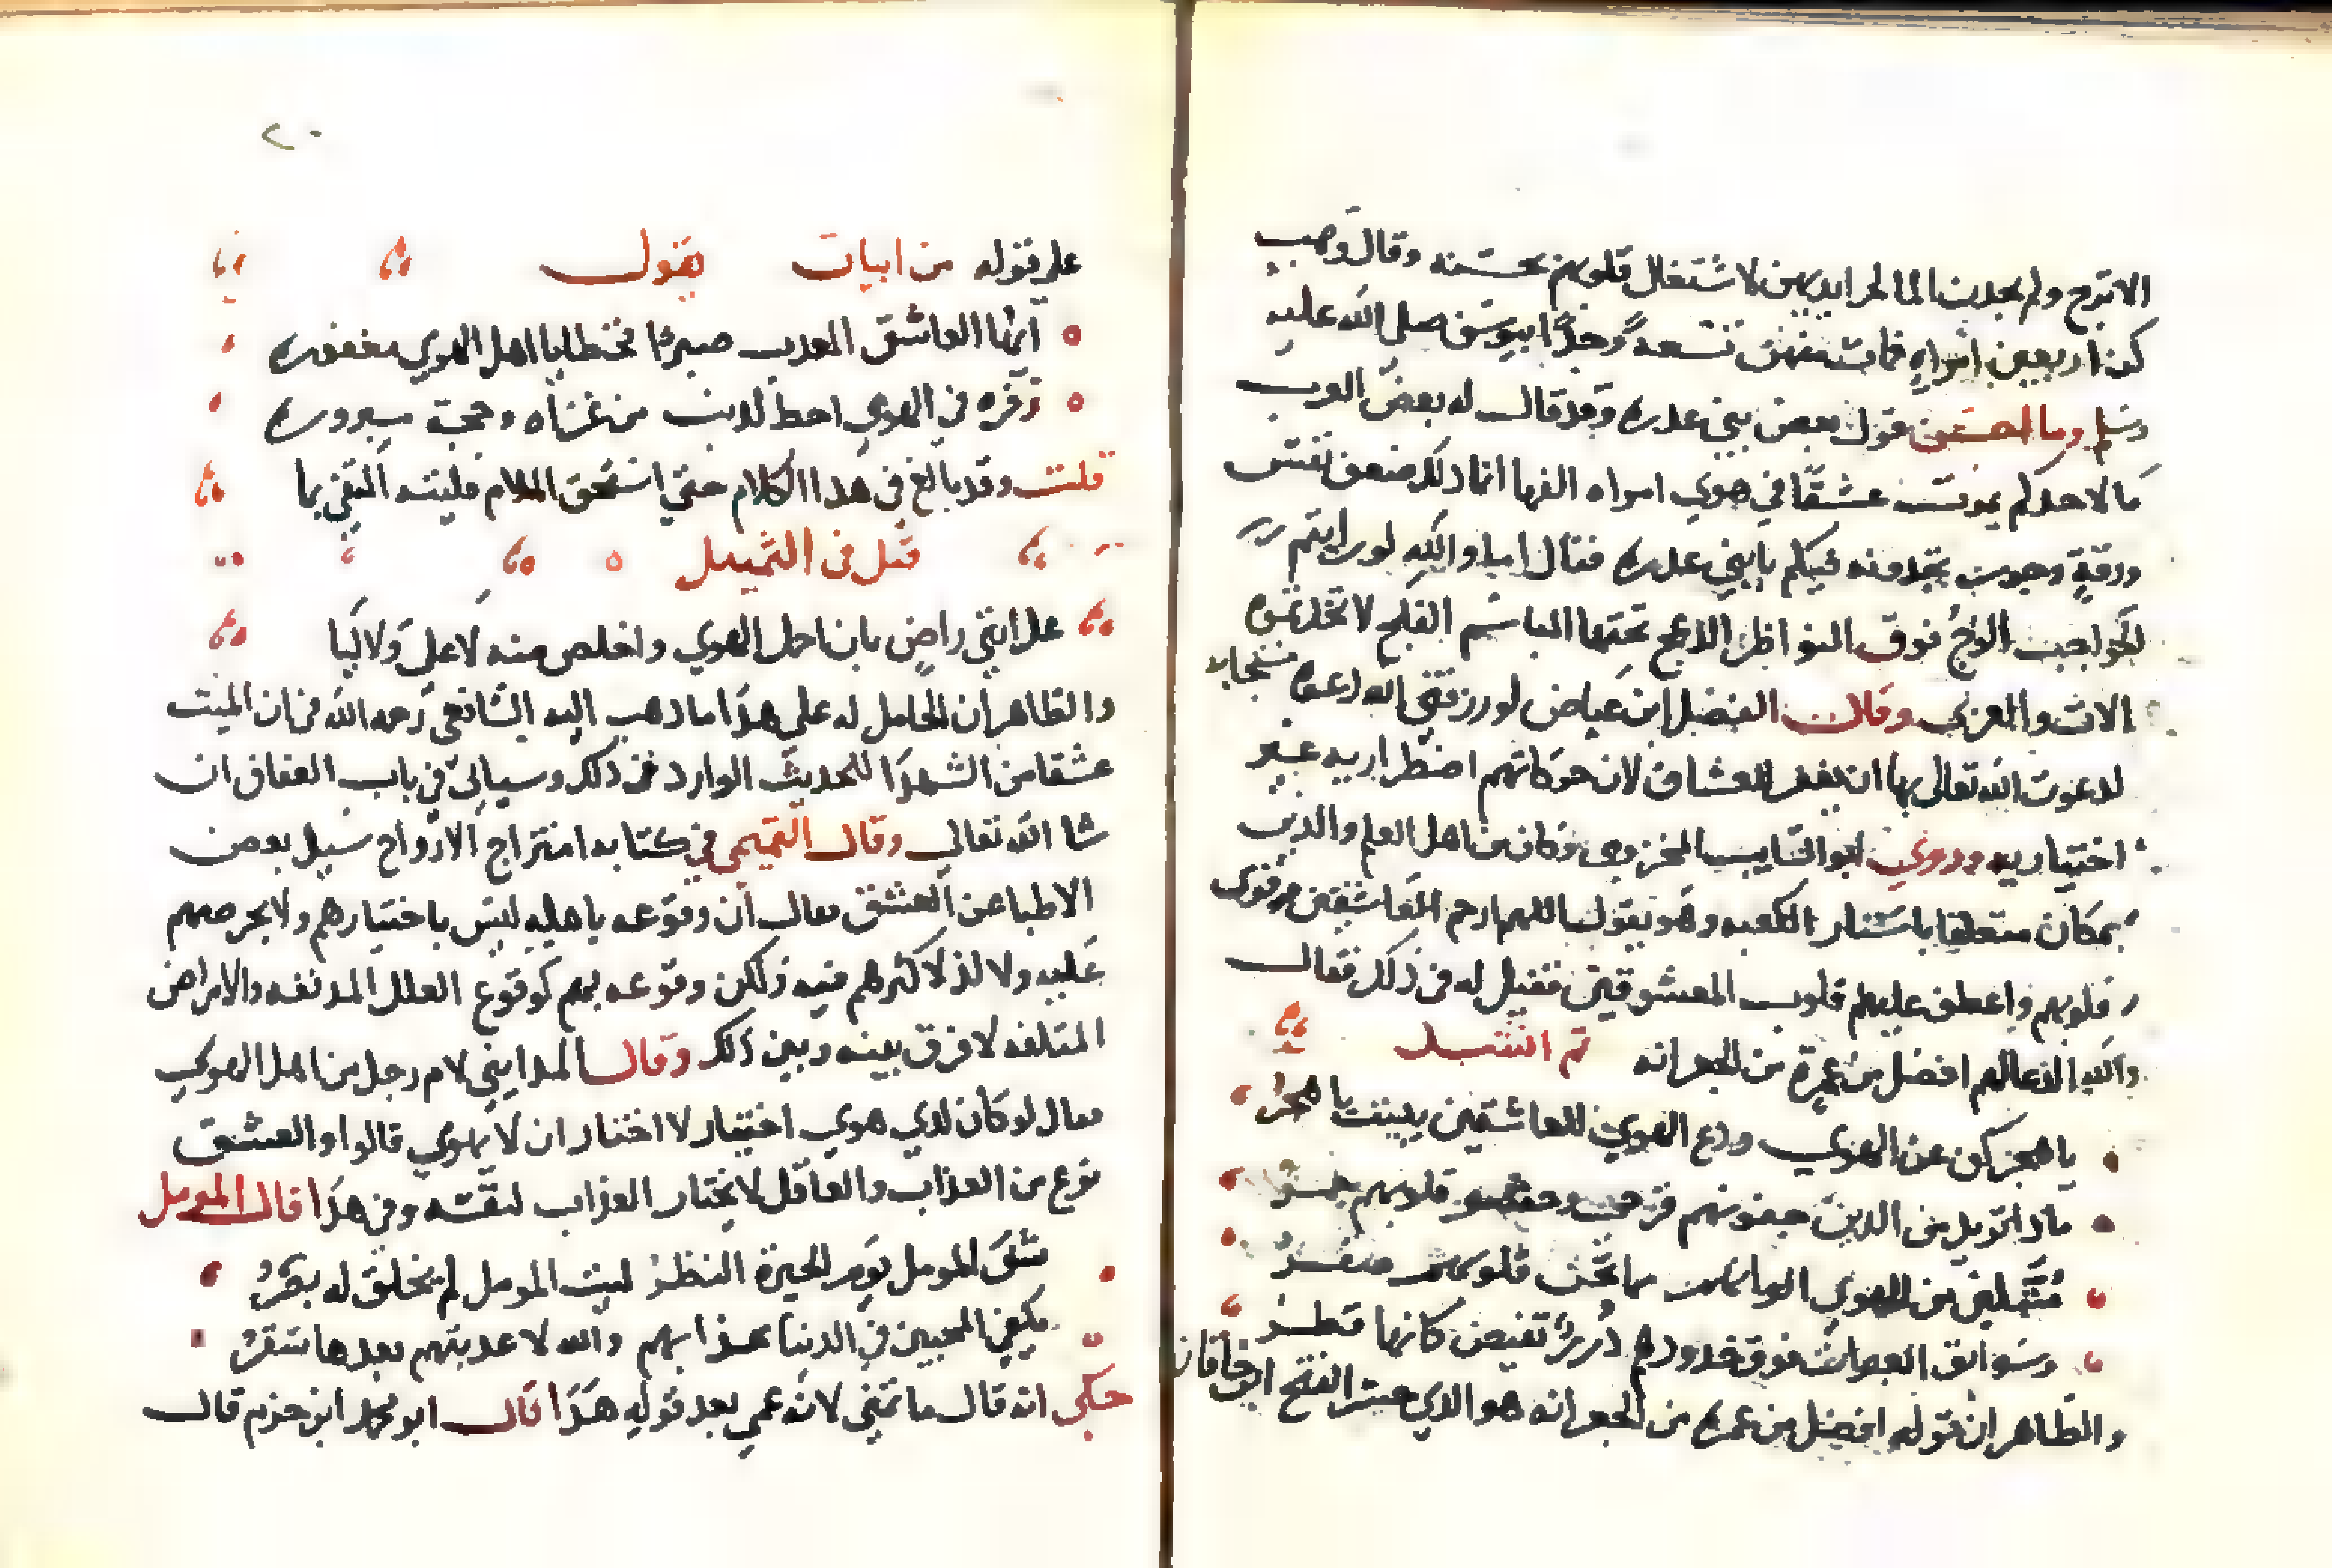 الاترج ولم يجدن الما لحز ايديهن لاشتغال قلوبهن بحسنه وقال وهب
كن اربعين امراه فمات منهن تسعة وجدًا بيوسف صلى الله عليه
وسلم وما احسن قول بعض بني عدره وقد قال له بعض العرب
ما لاحدكم يموت عشقًا في هوي امراه الفها انما دلك ضعف نفس
ورقة وخور تجدونه فيكم يا بني عدره فقال اما والله لو رايتم
الحواجب الزج فوق النواظر الدعج تحتها المباسم الفلج لاتخذتموه
اللات والعزي وقال الفضل ابن عياض لو رزقني الله دعوة مستجابه
لدعوت الله تعالى بها ان يغفر للعشاق لان حركاتهم اضطراريه غير
اختياريه وروي ابو السايب المخزومي وكان من اهل العلم والدين
بمكان متعلقا باستار الكعبه وهو يقول اللهم ارحم العاشقين وقوي
قلوبهم واعطف عليهم قلوب المعشوقين فقيل له في ذلك فقال
والله الدعا لهم افضل من عمرة من الجعرانه ثم انشد
يا هجر كف عن الهوي ودع الهوي للعاشقين يطيب يا هجر
ماذا تريد من الذين جفونهم قرحي وحشو قلوبهم جمر
متبلبلين من الهوي الوانهم مما تجن قلوبهم صفر
وسوابق العبرات فوق خدودهم درر تفيض كانها قطر
والظاهر ان قوله افضل من عمره من الجعرانه هو الذي جسر الفتح ابن خاقان
٢٠
على قوله من ابيات يقول
ايها العاشق المعذب صبرًا فخطايا اهل الهوي مغفوره
زفره في الهوي احط لذنب من غزاه وحجة مبروره
قلت وقد بالغ في هذا الكلام حتي استحق الملام فليته اكتفى بما
قيل في التمثيل
على انني راضٍ بان احمل الهوي واخلص منه لا علي ولا ليا
والظاهر ان الحامل له على هذا ما ذهب اليه الشافعي رحمه الله من ان الميت
عشقا من الشهدا للحديث الوارد في ذلك وسياتي في باب العفاف ان
شا الله تعالى وقال التميمي في كتابه امتزاج الارواح سيل بعض
الاطبا عن العشق فقال ان وقوعه باهليه ليس باختيارهم ولا بحرصهم
عليه ولا لذ لاكثرهم فيه ولكن وقوعه بهم كوقوع العلل المدنفه والامراض
المتلفه لا فرق بينه وبين ذلك وقال المدايني لام رجل من اهل الهوي
فقال لو كان لذي هوي اختيار لاختار ان لا يهوي قالوا والعشق
نوع من العذاب والعاقل لا يختار العذاب لنفسه وفي هذا قال المومل
شف المومل يوم الحيرة النظر ليت المومل لم يخلق له بصر
يكفي المحبين في الدنيا عذابهم والله لا عذبتهم بعدها سقر
حكي انه قال ما تمني لانه عمي بعد قوله هذا قال ابو محمد ابن حزم قال